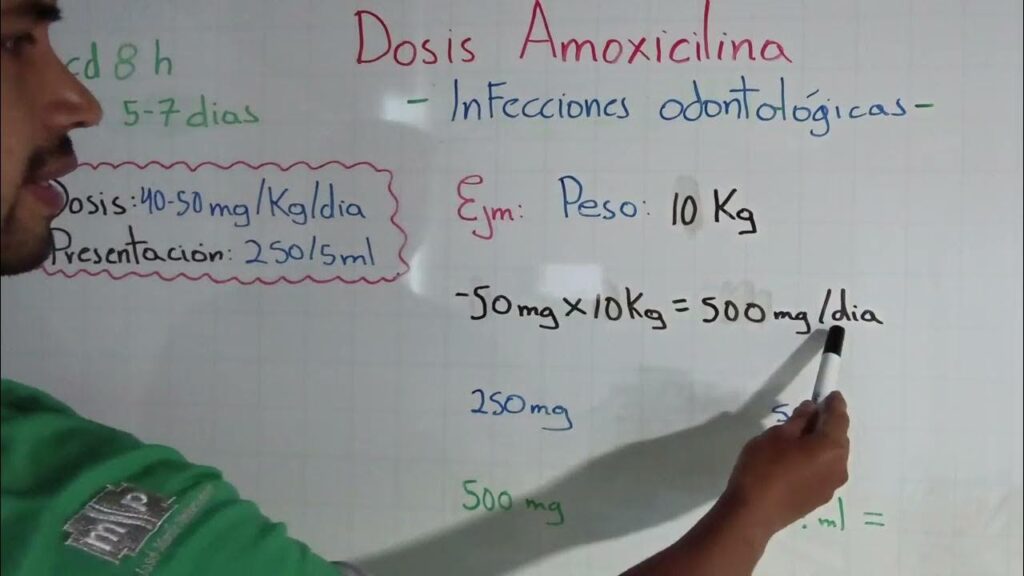 Dosis Amoxicilina
- Infecciones odontológicas -
cd 8 h
5-7 dias
Dosis: 40-50 mg/Kg/dia
Presentación: 250/5ml
Ejm: Peso: 10 Kg
-50mg x 10Kg = 500 mg/dia
250mg
500 mg ml =